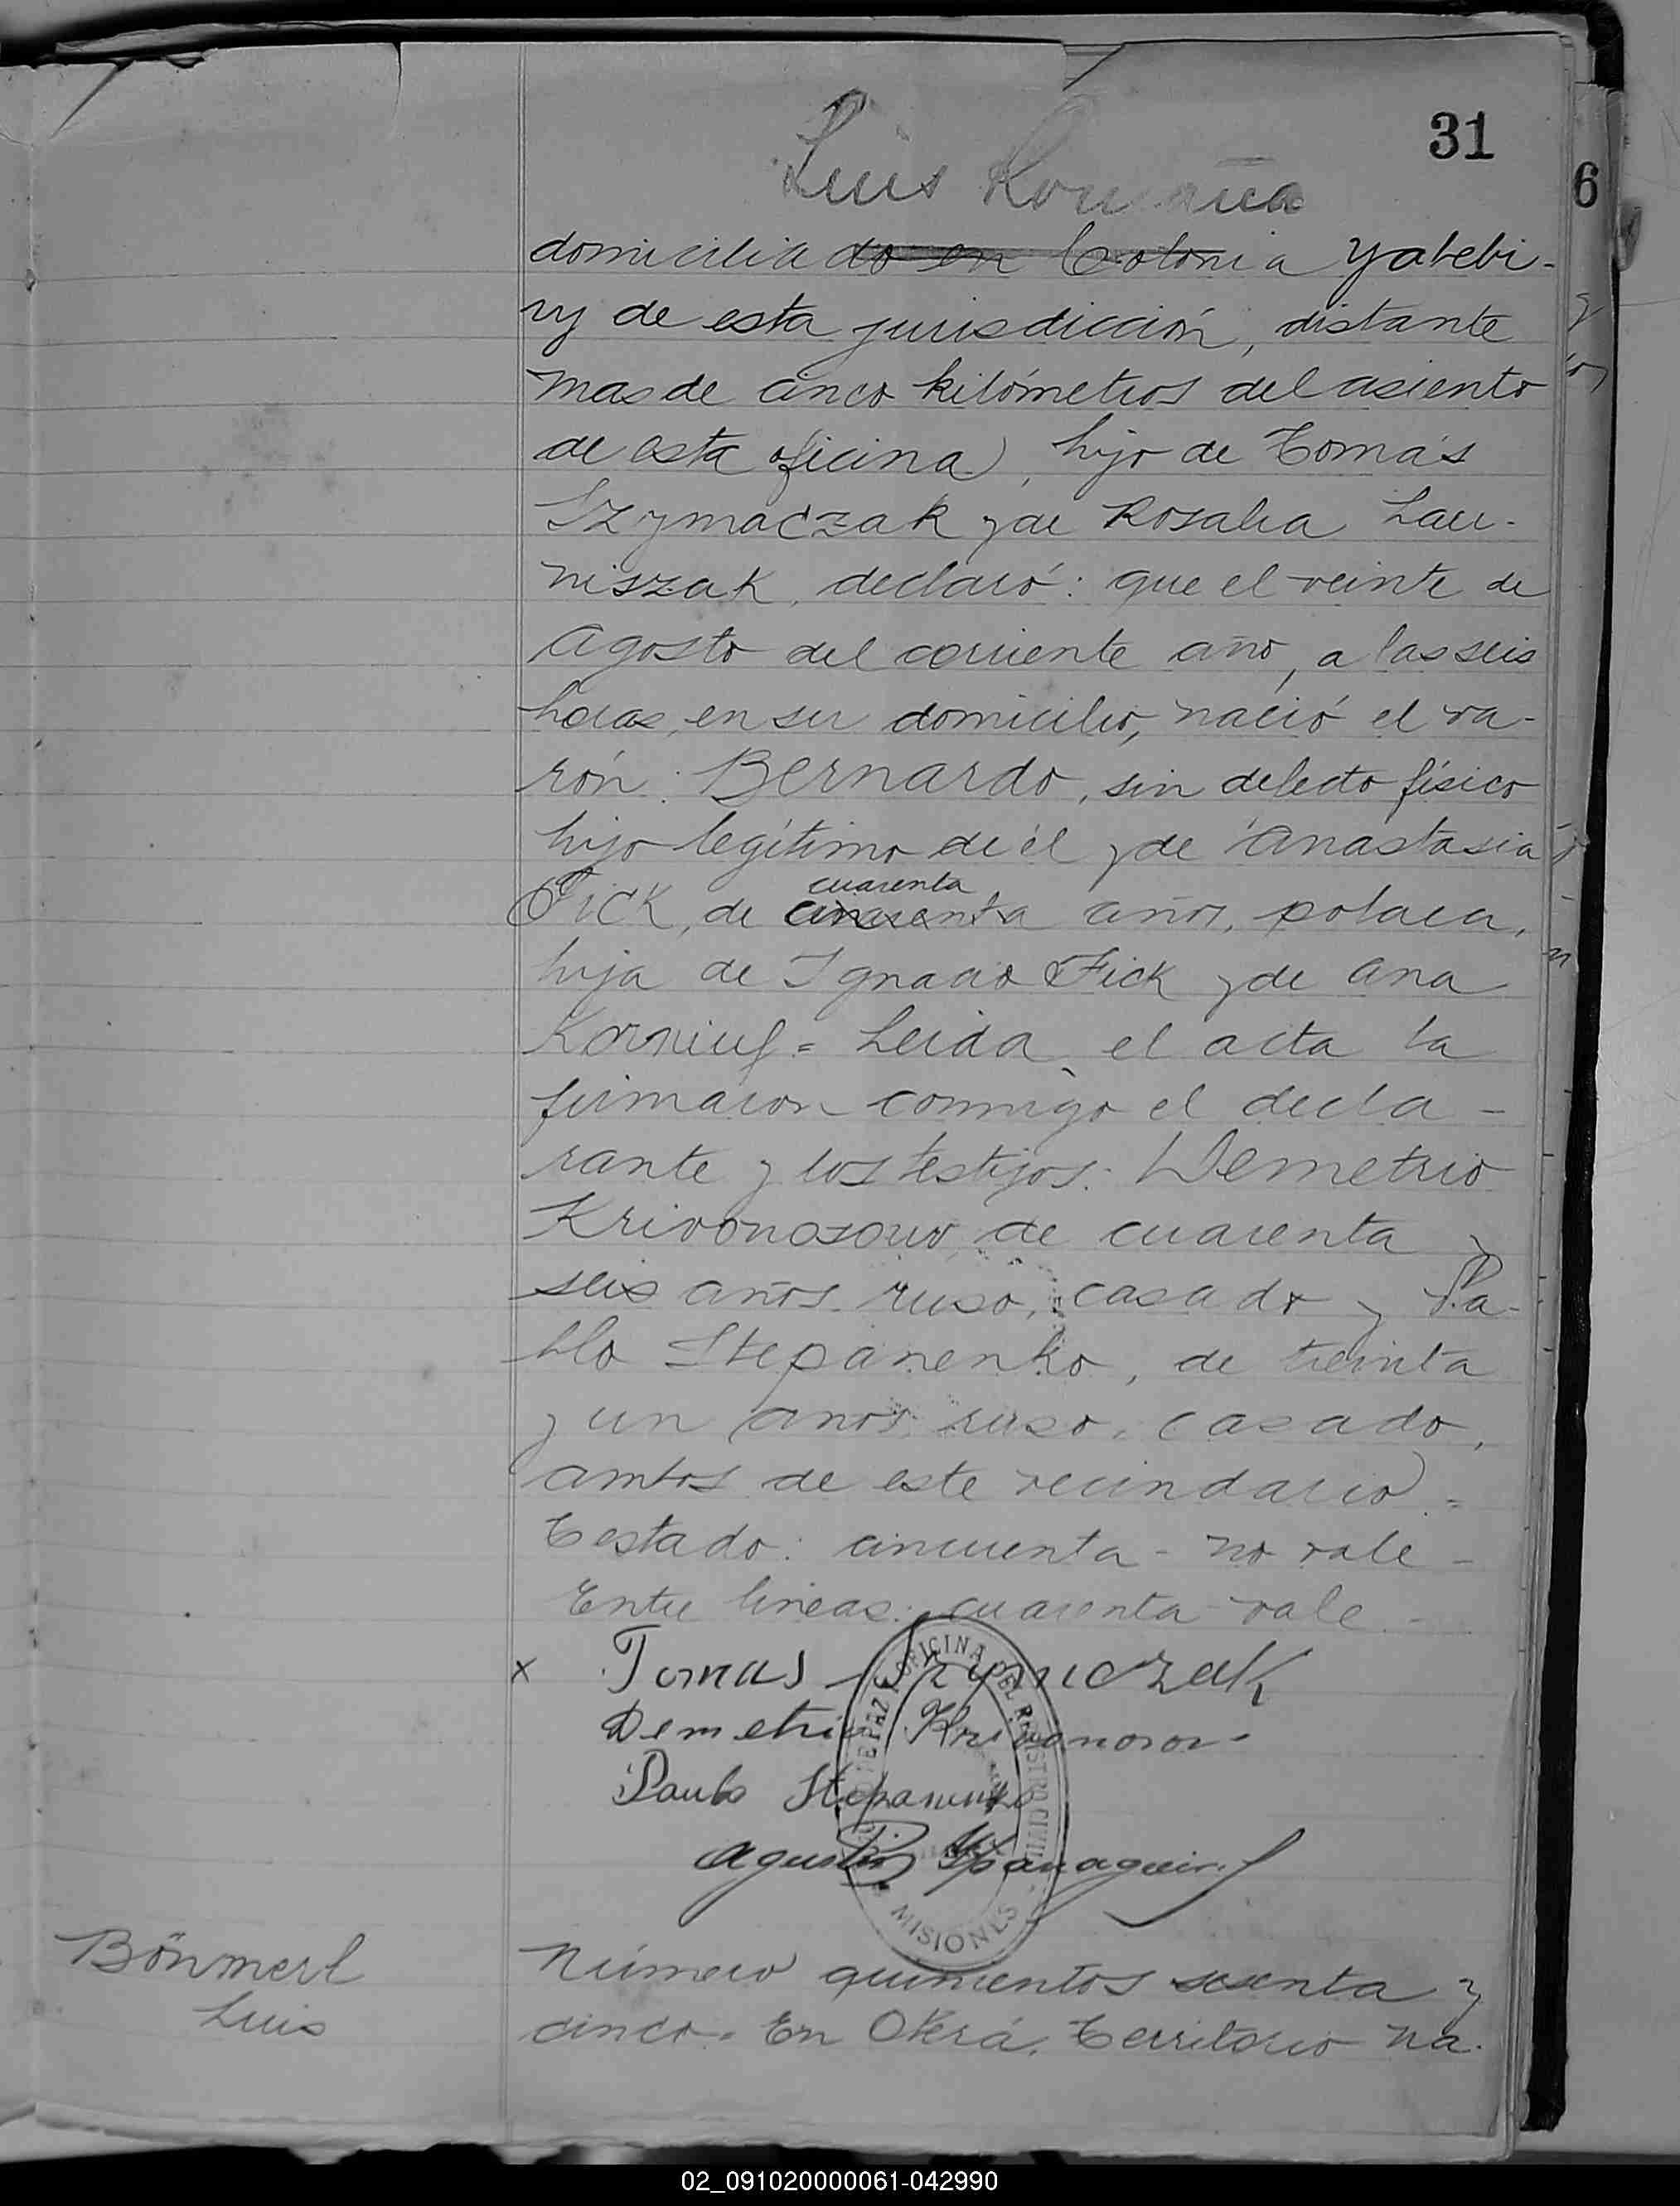 31
6
Luis
domiciliado en Colonia Yabebi-
ry de esta jurisdicción, distante
mas de cinco kilómetros del asiento
de esta oficina, hijo de Tomás
Szymaczak y de Rosalia Lau-
niszak, declaró: que el veinte de
Agosto del corriente año, a las seis
horas, en su domicilio, nació el va-
rón: Bernardo, sin defecto físico
hijo legítimo de él y de Anastasia
cuarenta
Fick, de cincuenta años, polaca,
hija de Ignacio Fick y de Ana
= Leida el acta la
firmaron conmigo el decla-
rante y los testigos: Demetrio
Krivonosow, de cuarenta y
seis años, ruso, casado y Pa-
blo Stepanenko, de treinta
y un años, ruso, casado,
ambos de este vecindario =
Testado: cincuenta - no vale -
Entre lineas: cuarenta - vale -
x Tomas
Demetrio
Paulo Stepanenko
Agustin
OFICINA DEL REGISTRO CIVIL
MISIONES
Bönmerl
Luis
Número quinientos sesenta y
cinco = En Oberá, Territorio Na-
02_091020000061-042990